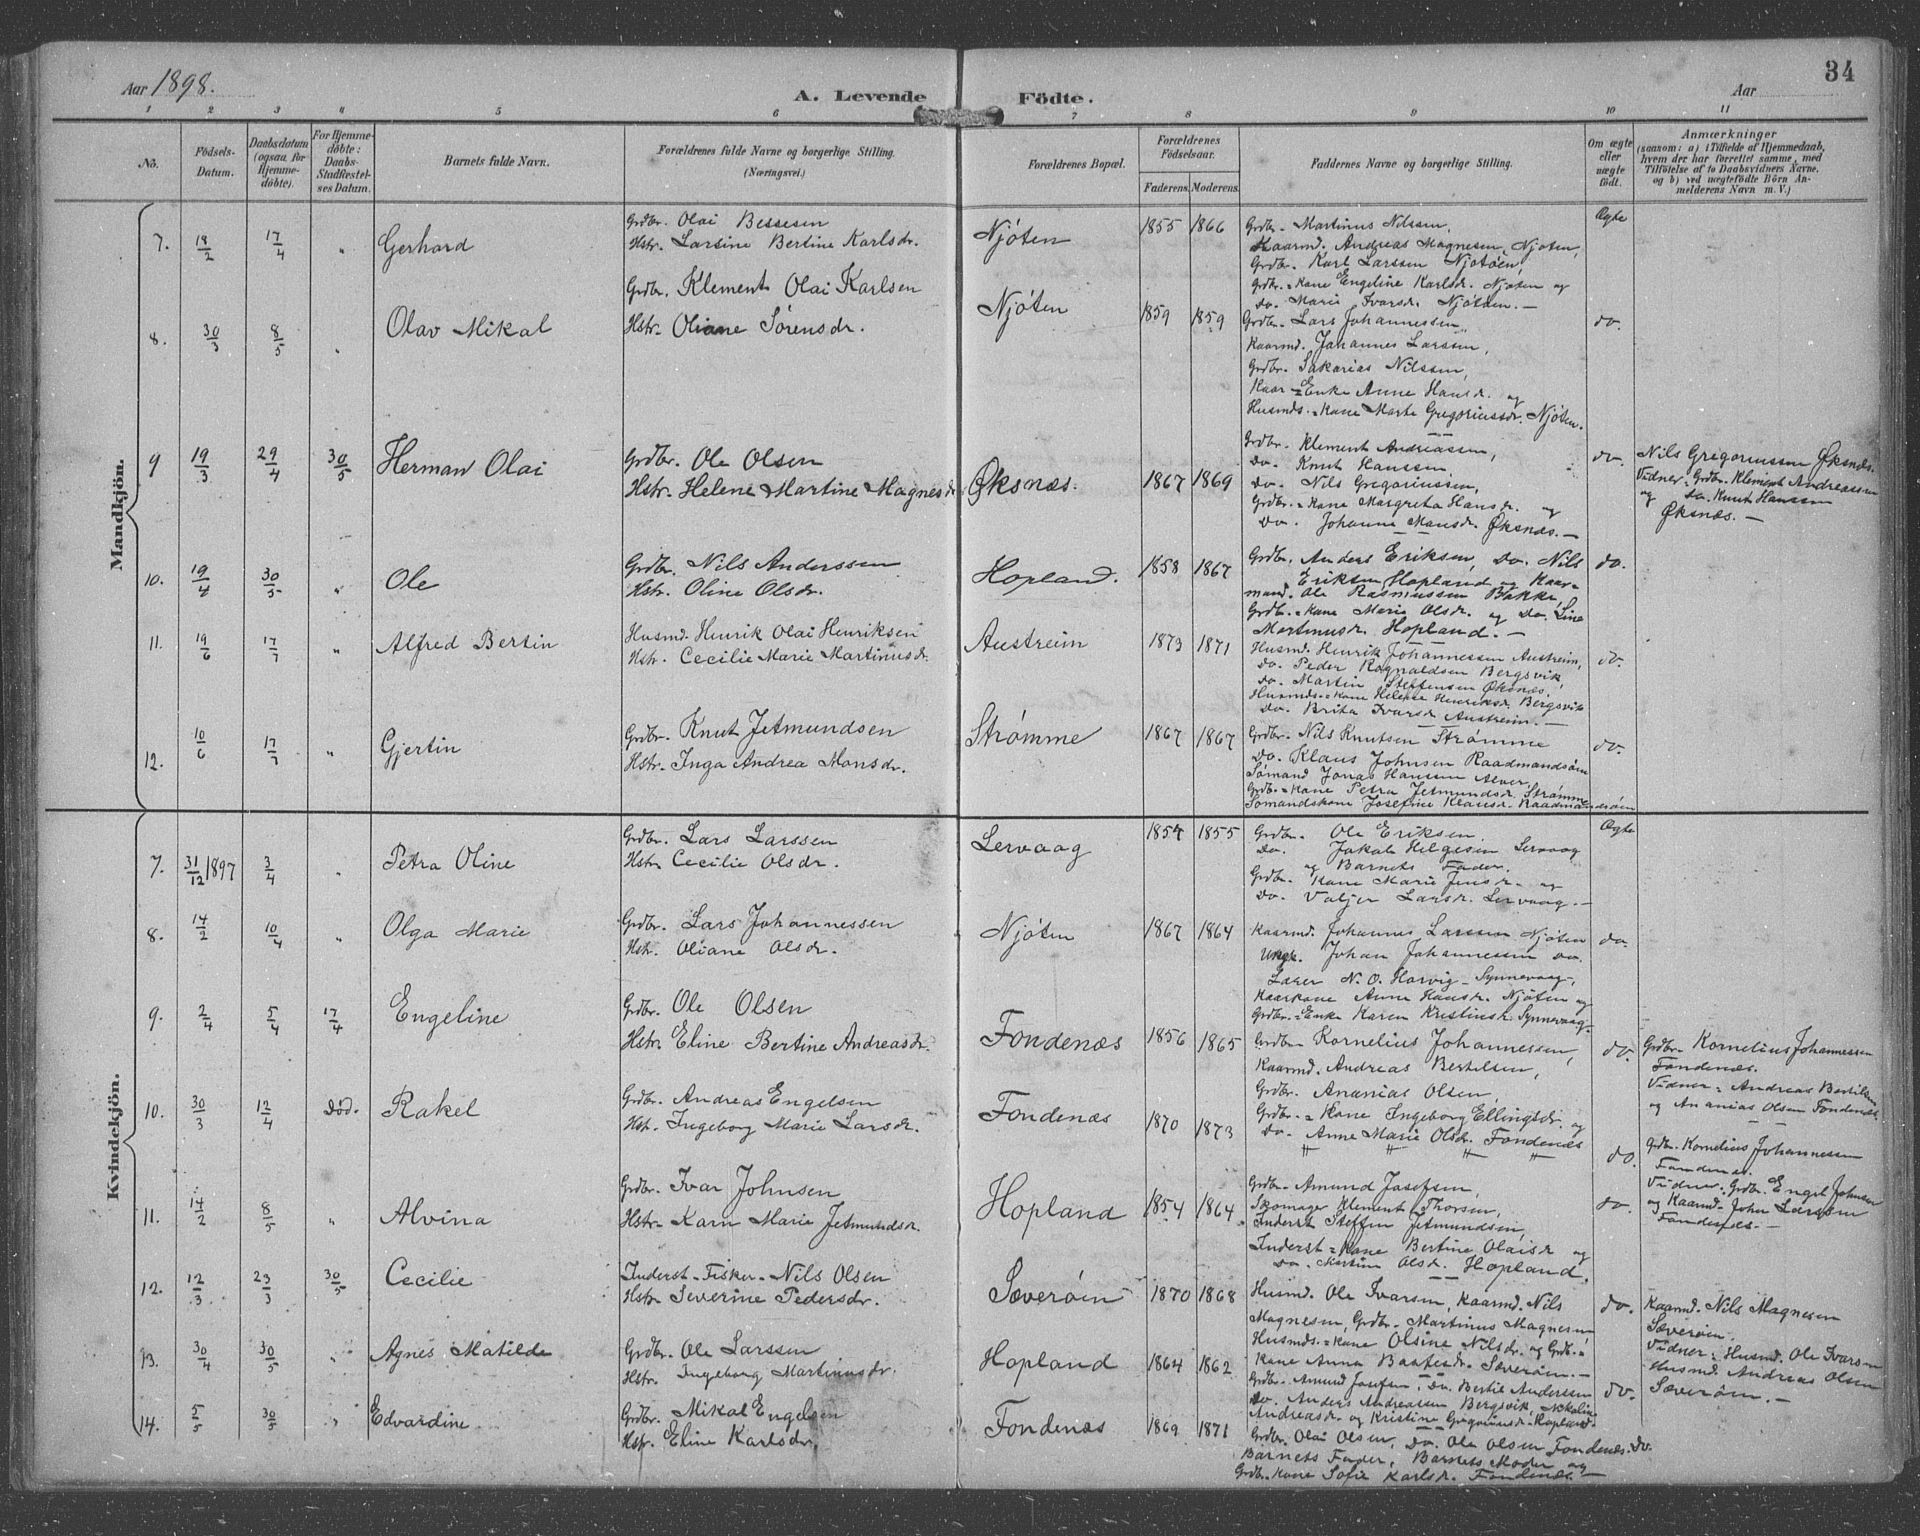 Aar 1898.
A. Levende Födte.
Aar
34
1 2 3 4 5 6 7 8 9 10 11
No.
Födsels-Datum.
Daabsdatum (ogsaa for Hjemme-döbte).
For Hjemme-döbte: Daabs-Stadfæstel-ses Datum.
Barnets fulde Navn.
Forældrenes fulde Navne og borgerlige Stilling. (Næringsvei.)
Forældrenes Bopæl.
Forældrenes Födselsaar.
Faderens. Moderens.
Faddernes Navne og borgerlige Stilling.
Om ægte eller uægte födt.
Anmærkninger
(saasom: a) i Tilfælde af Hjemmedaab,
hvem der har forrettet samme, med
Tilföielse af to Daabsvidners Navne,
og b) ved uægtefödte Börn An-
melderens Navn m. V.)
Mandkjön.
7. 18/2 17/4 " Gerhard
Grdbr. Olai Bessesen
Hstr. Larsine Bertine Karlsdr.
Njöten 1855 1866
Grdbr. Martinus Nilssen,
Kaarmd. Andreas Magnesen, Njöten,
Grdbr. Karl Larssen Njötöen,
Grdbr.-Kane Engeline Karlsdr. Njöten og
do. Marie Ivarsdr. Njöten.—
Ægte
8. 30/3 8/5 " Olav Mikal
Grdbr. Klement Olai Karlsen
Hstr. Oliane Sørensdr.
Njöten 1859 1859
Grdbr. Lars Johannessen,
Kaarmd. Johannes Larssen,
Grdbr. Sakarias Nilssen,
Kaar-Enke Anne Hansdr. og
Husmds.-Kane Marte Gregoriusdr. Njöten.
do.
9 19/3 29/4 30/5 Herman Olai
Grdbr. Ole Olsen
Hstr. Helene Martine Magnesdr.
Øksnæs. 1867 1869
Grdbr. Klement Andreassen,
do. Knut Hanssen,
do. Nils Gregoriussen,
Grdbr.-Kane Margreta Hansdr. og
do. Johanne Mansdr. Øksnæs.—
do.
Nils Gregoriussen Øksnæs.
Vidner: Grdbr. Klement Andreassen
og do. Knut Hanssen
Øksnæs.—
10. 19/4 30/5 " Ole
Grdbr. Nils Anderssen
Hstr. Oline Olsdr.
Hopland. 1858 1867
Grdbr. Anders Eriksen, do. Nils
Eriksen Hopland og Kaar-
mand. Ole Rasmussen Bakke,
Grdbr.-Kane Marie Olsdr. og do. Line
Martinusdr. Hopland.—
do.
11. 19/6 17/7 " Alfred Bertin
Husmd. Henrik Olai Henriksen
Hst. Cecilie Marie Martinusdr.
Austreim 1873 1871
Husmd. Henrik Johannessen Austreim,
do. Peder Ragnaldsen Bergsvik,
do. Martin Steffensen Øksnæs,
Husmds.-Kane Helene Henriksdr. Bergsvik
do. Brita Ivarsdr Austreim.—
do.
12. 10/6 17/7 " Gjertin
Grdbr. Knut Jetmundsen
Hstr. Inga Andrea Monsdr.
Strømme 1867 1867
Grdbr. Nils Knutsen Strømme
do. Klaus Johnsen Raadmandsøen
Sømand Jonas Hanssen Alver
Grdb.-Kane Petra Jetmundsdr. Strømme
Sømandskane Josefine Klausdr. Raadmandsøen
do.
Kvindekjön.
7. 31/12 1897 3/4 " Petra Oline
Grdbr. Lars Larssen
Hst. Cecilie Olsdr.
Lervaag 1854 1855
Grdbr. Ole Eriksen.
do. Jakob Helgesen Lervaag
og Barnets Fader.
Grdbr.-Kane Marie Jensdr. og
do. Valjer Larsdr. Lervaag.—
Ægte
8. 14/2 10/4 " Olga Marie
Grdbr. Lars Johannessen
Hstr. Oliane Olsdr.
Njöten 1867 1864
Kaarmd. Johannes Larssen Njöten
Ungk. Johan Johannessen do.
Lærer N. O. Harvig Synnevaag,
Kaarkane Anne Hansdr. Njöten og
Grdbr.-Enke Karen Kristinsdr. Synnevaag
do.
9. 2/4 5/4 17/4 Engeline
Grdbr. Ole Olsen
Hstr. Eline Bertine Andreasdr.
Fondenæs 1856 1865
Grdbr. Kornelius Johannessen,
Kaarmd. Andreas Bertelsen,
Grdbr. Ananias Olsen,
Grdbr.-Kane Ingeborg Ellingsdr. og
do. Anne Marie Olsdr. Fondenæs
do.
Grdbr. Kornelius Johannessen
Fondenæs.
Vidner: Andreas Bertilsen
og Ananias Olsen Fondenæs
10. 30/3 12/4 Död. Rakel
Grdbr. Andreas Engelsen
Hst. Ingeborg Marie Larsdr.
Fondenæs 1870 1873
" " " "
do.
Grdbr. Kornelius Johannessen
Fondenæs.
Vidner: Grdbr. Engel Johnsen
og Kaarmd. John Larssen
Fondenæs.—
11. 14/2 8/5 " Alvina
Grdbr. Ivar Johnsen
Hstr. Karn Marie Jetmundsdr.
Hopland 1854 1864
Grdbr. Amund Josefsen,
Skomager Klement Thorsen,
Inderst Steffen Jetmundsen,
Inderst-Kane Bertine Olaisdr og
do. Olsdr. Hopland.
do.
12. 12/3 23/3 30/5 Cecilie
Inderst-Fisker-Nils Olsen
Hstr Severine Pedersdr.
Sæverøen 1870 1868
Husmd. Ole Ivarsen, Kaarmd. Nils
Magnesen, Grdbr. Martinus Magnesen
Husmds.-Kane Olsine Nilsdr. og Grdb.-
Kane Anna Baatesdr. Sæverøen.—
do.
Kaarmd. Nils Magnesen
Sæverøen.
Vidner: Husmd. Ole Ivarsen
Husmd. Andreas Olsen
Sæverøen.—
13. 30/4 30/5 " Agnes Matilde
Grdbr. Ole Larssen
Hstr. Ingeborg Martinusdr.
Hopland 1864 1862
Grdbr. Amund Josefsen, do. Bertil Anderssen
do. Anders Andreassen Bergsvik, Nikoline
Andreasdr. og Kristine Gregoriusdr. Hopland.
do.
14. 5/5 30/5 " Edvardine
Grdbr. Mikal Engelsen
Hst. Eline Karlsdr.
Fondenæs 1869 1871
Grdbr. Olai Olsen, do. Ole Olsen Fondenæs.
Barnets Fader, Barnets Moder og
Grdbr.-Kane Sofie Karlsdr. Fondenæs.—
do.